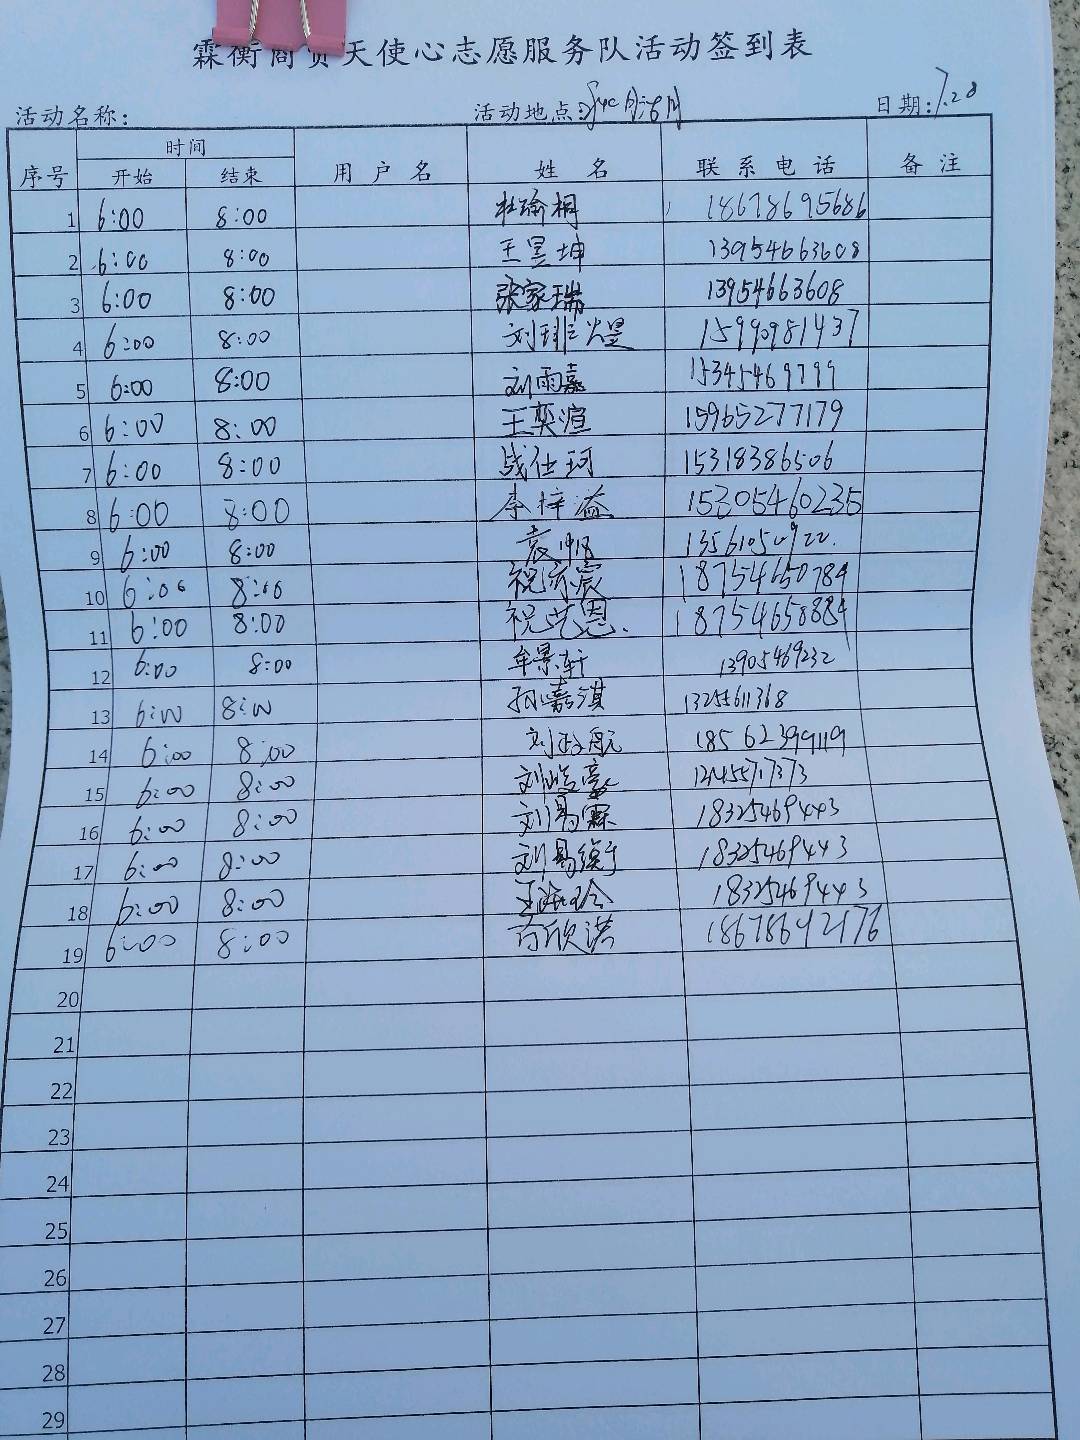 霖衡商贸天使心志愿服务队活动签到表
活动名称: 活动地点: 日期:7.28
序号 时间 用户名 姓名 联系电话 备注
开始 结束
1 6:00 8:00 杜瑜桐 18678695686
2 6:00 8:00 王昱坤 13954663608
3 6:00 8:00 张家瑞 13954663608
4 6:00 8:00 刘琲煜 15990981437
5 6:00 8:00 刘雨嘉 15345469799
6 6:00 8:00 王奕渲 15965277179
7 6:00 8:00 战仕珂 15318386506
8 6:00 8:00 李梓溢 15305460235
9 6:00 8:00 袁 13561050922.
10 6:00 8:00 祝 震 18754650784
11 6:00 8:00 祝艺恩. 18754658884
12 6:00 8:00 牟景轩 13905469232
13 6:00 8:00 孙嘉淇 13255611368
14 6:00 8:00 刘政航 18562399119
15 6:00 8:00 刘峻豪
16 6:00 8:00 刘易霖 18325469443
17 6:00 8:00 刘易 18325469443
18 6:00 8:00 王 玲 18325469443
19 6:00 8:00 欣洪 18678692176
20
21
22
23
24
25
26
27
28
29